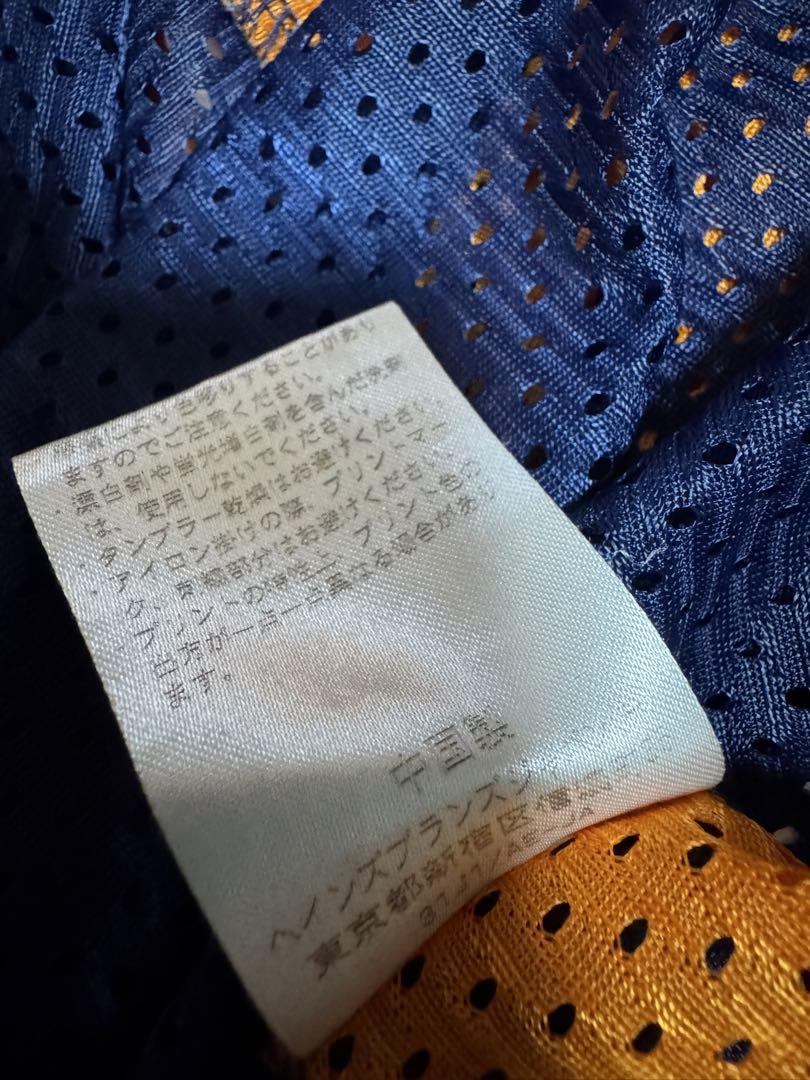 により色移りすることがあい
ますのでご注意ください。
・漂白剤や蛍光増白剤を含んだ洗剤
は、使用しないでください。
・タンブラー乾燥はお避けください。
・アイロン掛けの際、プリント、マー
ク、刺繍部分はお避けください。
・プリントの特性上、プリント色の
出方が一点一点異なる場合があり
ます。
中国製
ヘインズブランズジ
東京都新宿区信濃